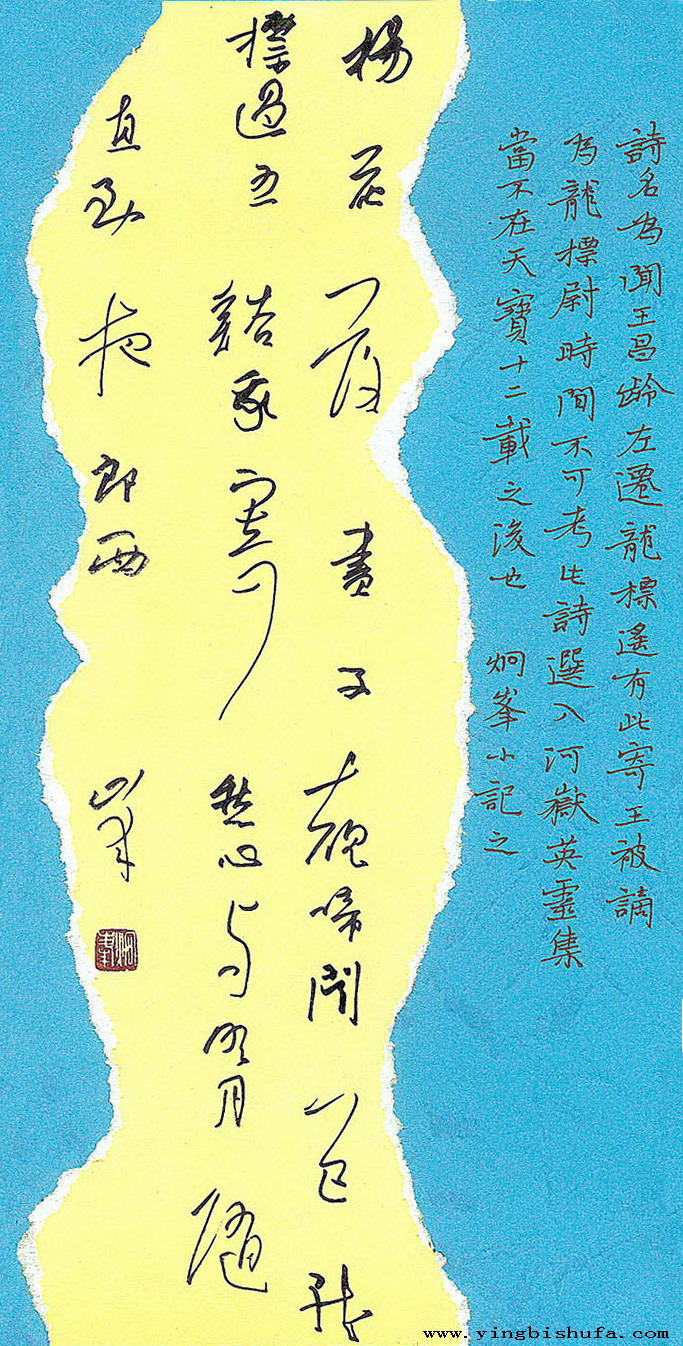 詩名為聞王昌齡左遷龍標遙有此寄王被謫
為龍標尉時間不可考此詩選入河嶽英靈集
當不在天寶十二載之後也 炯峯小記之
楊花落盡子規啼聞道龍
標過五谿我寄愁心與明月隨
直到夜郎西
峯
www.yingbishufa.com